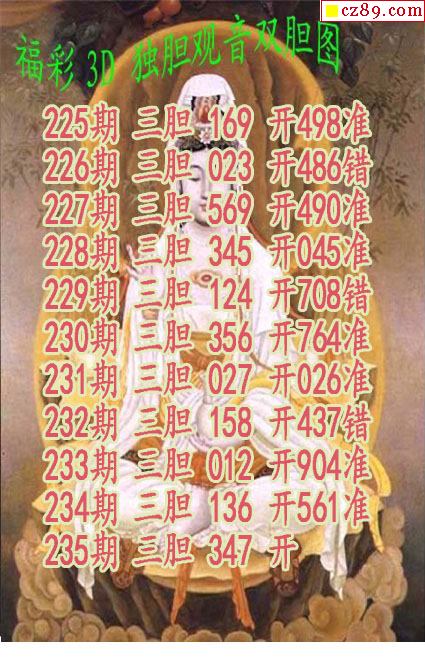 cz89.com
福彩 3D 独胆观音双胆图
225期 三胆 169 开498准
226期 三胆 023 开486错
227期 三胆 569 开490准
228期 三胆 345 开045准
229期 三胆 124 开708错
230期 三胆 356 开764准
231期 三胆 027 开026准
232期 三胆 158 开437错
233期 三胆 012 开904准
234期 三胆 136 开561准
235期 三胆 347 开